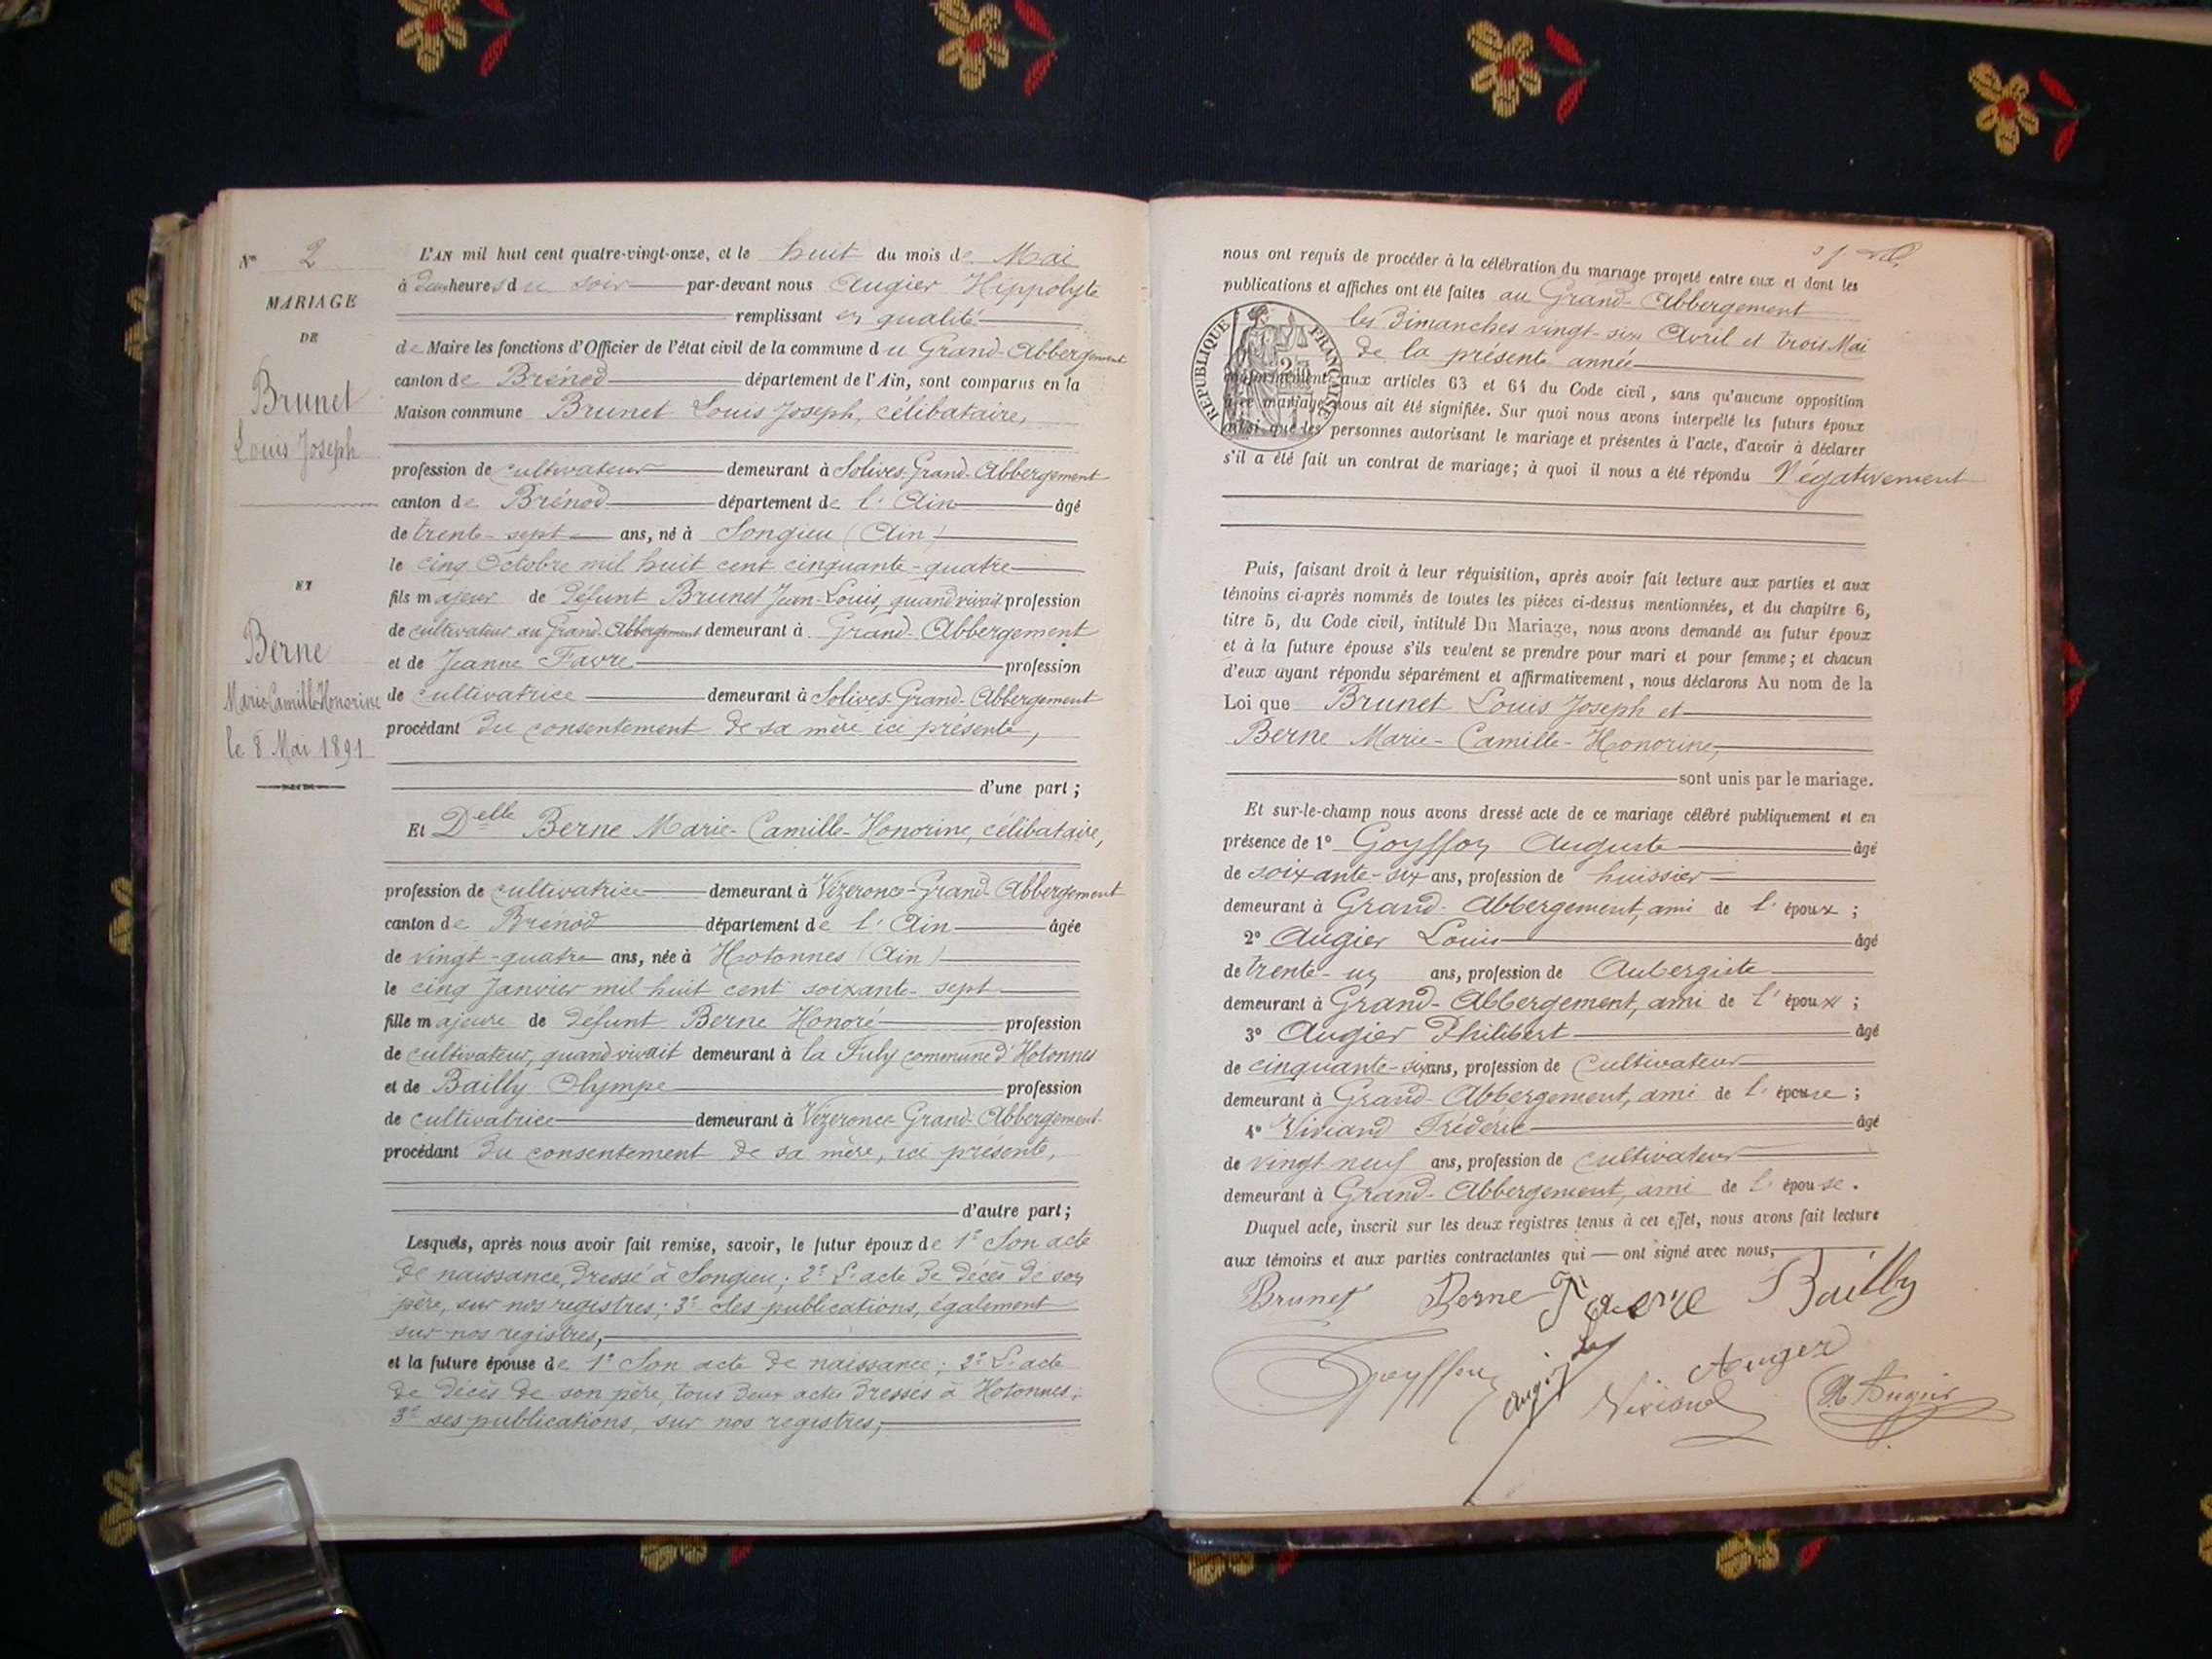 N° 2
MARIAGE
DE
Brunet
Louis Joseph
ET
Berne
Marie-Camille-Honorine
le 8 Mai 1891
L'AN mil huit cent quatre-vingt-onze, et le huit du mois de Mai
à deux heures du soir par-devant nous Augier Hippolyte
remplissant en qualité
de Maire les fonctions d'Officier de l'état civil de la commune du Grand-Abbergement
canton de Brénod département de l'Ain, sont comparus en la
Maison commune Brunet Louis Joseph, célibataire,
profession de cultivateur demeurant à Solives-Grand-Abbergement
canton de Brénod département de l'Ain âgé
de trente-sept ans, né à Songieu (Ain)
le cinq Octobre mil huit cent cinquante-quatre
fils majeur de défunt Brunet Jean-Louis, quand vivait profession
de cultivateur au Grand-Abbergement demeurant à Grand-Abbergement
et de Jeanne Favre profession
de cultivatrice demeurant à Solives-Grand-Abbergement
procédant du consentement de sa mère ici présente,
d'une part;
Et Delle Berne Marie-Camille-Honorine, célibataire,
profession de cultivatrice demeurant à Vezeronce-Grand-Abbergement
canton de Brénod département de l'Ain âgée
de vingt-quatre ans, née à Hotonnes (Ain)
le cinq Janvier mil huit cent soixante-sept
fille majeure de défunt Berne Honoré profession
de cultivateur, quand vivait demeurant à la Fuly commune d'Hotonnes
et de Bailly Olympe profession
de cultivatrice demeurant à Vezeronce-Grand-Abbergement
procédant du consentement de sa mère, ici présente,
d'autre part;
Lesquels, après nous avoir fait remise, savoir, le futur époux de 1° Son acte
de naissance, dressé à Songieu; 2° L'acte de décès de son
père, sur nos registres; 3° des publications, également
sur nos registres,
et la future épouse de 1° Son acte de naissance; 2° L'acte
de décès de son père, tous deux actes dressés à Hotonnes;
3° ses publications, sur nos registres,
nous ont requis de procéder à la célébration du mariage projeté entre eux et dont les
publications et affiches ont été faites au Grand-Abbergement
les Dimanches vingt-six Avril et trois Mai
de la présente année
RÉPUBLIQUE FRANÇAISE
conformément aux articles 63 et 64 du Code civil, sans qu'aucune opposition
à ce mariage nous ait été signifiée. Sur quoi nous avons interpellé les futurs époux
ainsi que les personnes autorisant le mariage et présentes à l'acte, d'avoir à déclarer
s'il a été fait un contrat de mariage; à quoi il nous a été répondu Négativement
Puis, faisant droit à leur réquisition, après avoir fait lecture aux parties et aux
témoins ci-après nommés de toutes les pièces ci-dessus mentionnées, et du chapitre 6,
titre 5, du Code civil, intitulé Du Mariage, nous avons demandé au futur époux
et à la future épouse s'ils veulent se prendre pour mari et pour femme; et chacun
d'eux ayant répondu séparément et affirmativement, nous déclarons Au nom de la
Loi que Brunet Louis Joseph et
Berne Marie-Camille-Honorine,
sont unis par le mariage.
Et sur-le-champ nous avons dressé acte de ce mariage célébré publiquement et en
présence de 1° Goyffon Auguste âgé
de soixante-six ans, profession de huissier
demeurant à Grand-Abbergement, ami de l'époux;
2° Augier Louis âgé
de trente-un ans, profession de Aubergiste
demeurant à Grand-Abbergement, ami de l'époux;
3° Augier Philibert âgé
de cinquante-six ans, profession de cultivateur
demeurant à Grand-Abbergement, ami de l'épouse;
4° Viviand Frédéric âgé
de vingt neuf ans, profession de cultivateur
demeurant à Grand-Abbergement, ami de l'épouse.
Duquel acte, inscrit sur les deux registres tenus à cet effet, nous avons fait lecture
aux témoins et aux parties contractantes qui — ont signé avec nous,
Brunet Berne Favre Bailly
Goyffon Augier Ls Viviand Auger H. Augier